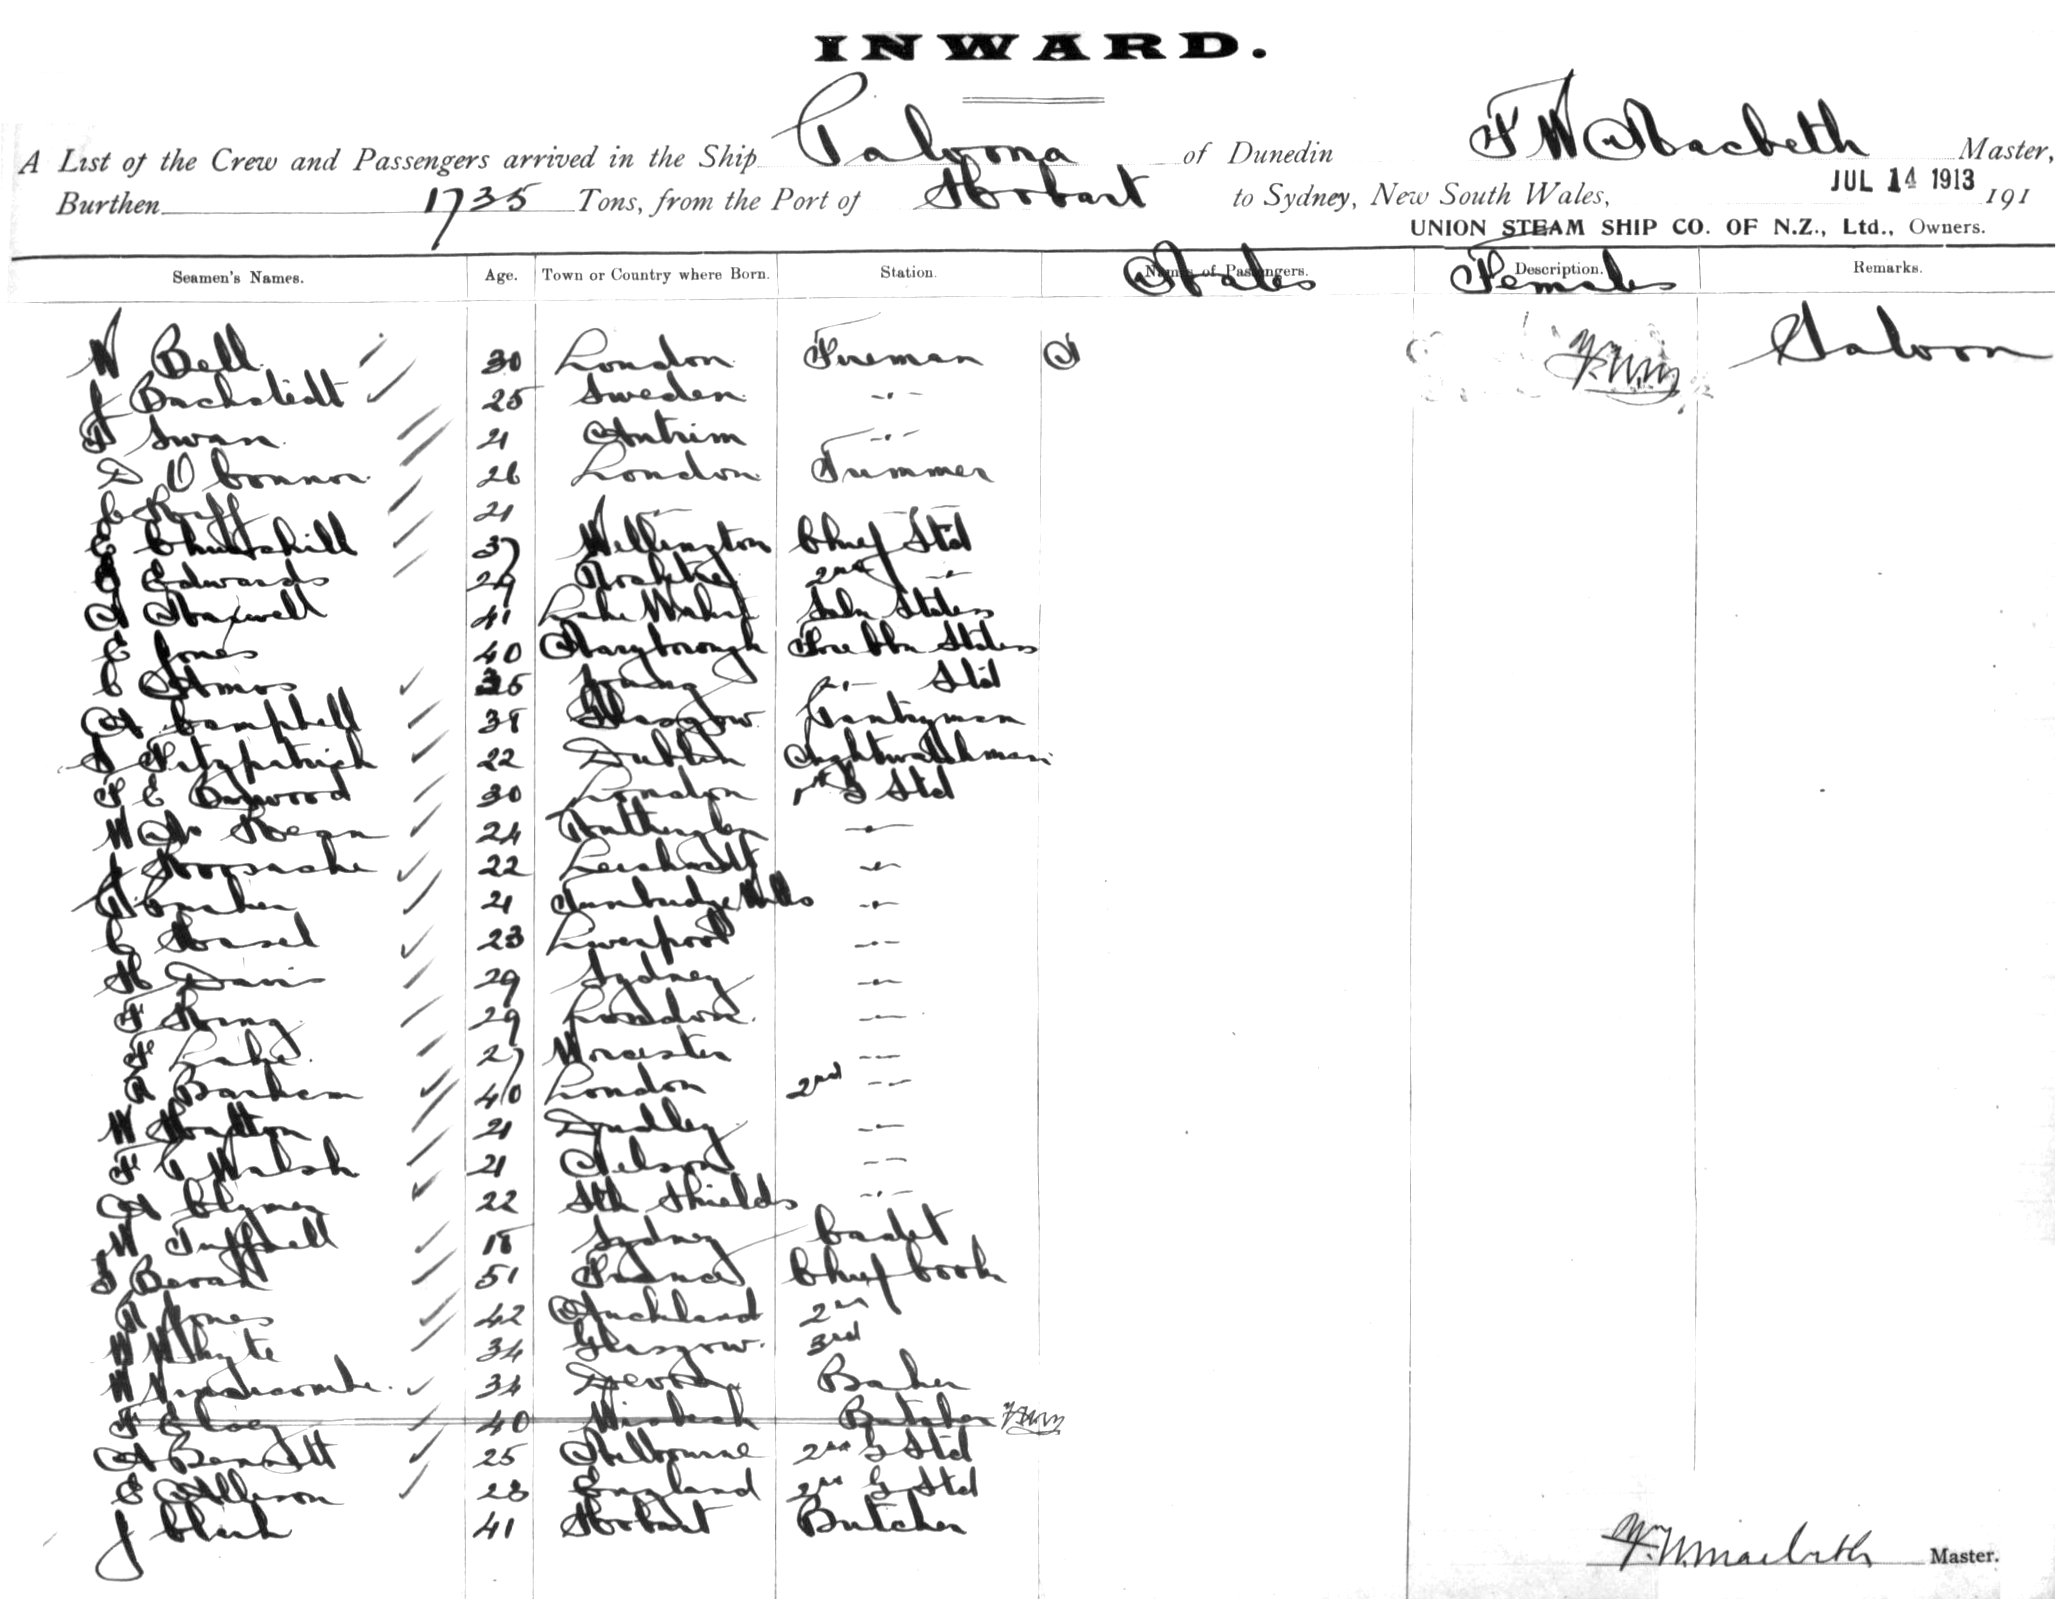 INWARD.
A List of the Crew and Passengers arrived in the Ship Paloona of Dunedin F W Macbeth Master,
Burthen 1735 Tons, from the Port of Hobart to Sydney, New South Wales, JUL 14 1913 191
UNION STEAM SHIP CO. OF N.Z., Ltd., Owners.
Seamen's Names. Age. Town or Country where Born. Station. Names of Passengers. Description. Remarks.
Males Females
W Bell 30 London Fireman Saloon
J Bachstedt 25 Sweden -"-
F Swan 21 Antrim -"-
D O'Connor 26 London Trimmer
21 -"-
E Churchill 37 Wellington Chief Std
Edwards 29 2nd -"-
A Maxwell 41 Stdess
E Jones 40 Maryborough Stdess
C Amos 35 Young -"- Std
A Campbell 38 Glasgow Pantryman
Fitzpatrick 22 Dublin Nightwatchman
F E 30 London 1st S Std
W 24 Rutherglen -"-
J 22 Leichardt -"-
21 Tunbridge Wells -"-
C 23 Liverpool -"-
H Davis 29 Sydney -"-
F King 29 London -"-
F Lake 27 Worcester -"-
A Barham 40 London 2nd -"-
W 21 Dudley -"-
F V Walsh 21 Nelson -"-
A Clymer 22 Sth Shields -"-
W Tuffnell 18 Sydney Cadet
51 France Chief Cook
A Jones 42 Auckland 2nd
W Whyte 34 Glasgow 3rd
W 34 Devon Baker
F 40 Wisbech Butcher
A Bennett 25 Melbourne 2nd S Std
E Allison 23 England 2nd S Std
J Clark 41 Hobart Butcher
F. W. Macbeth Master.